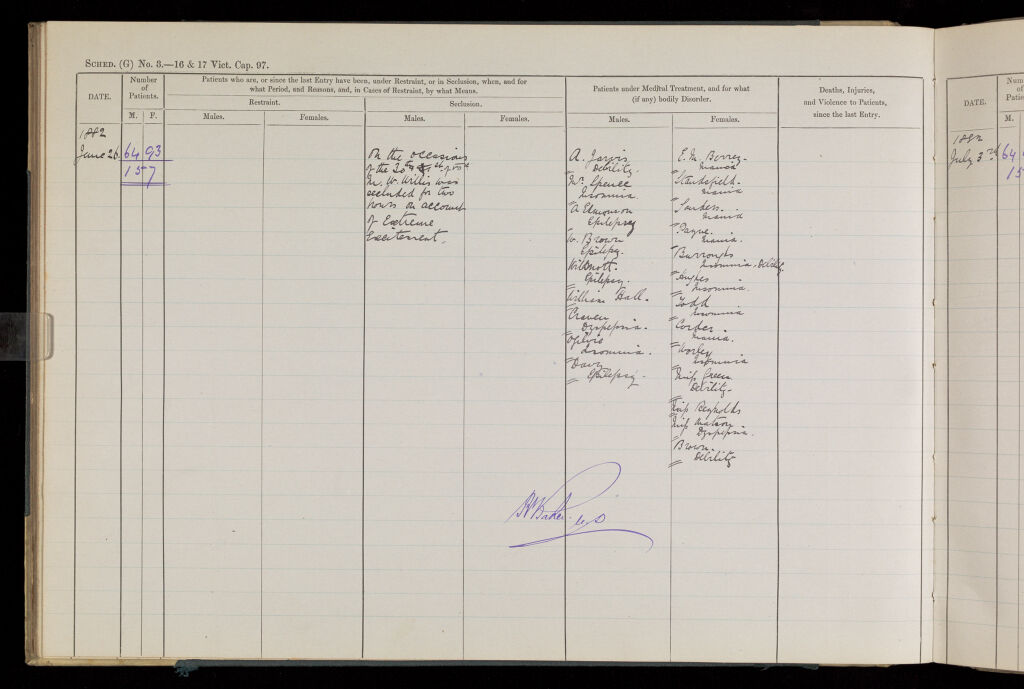 SCHED. (G) No. 3.—16 & 17 Vict. Cap. 97.
DATE.
Number of Patients.
M. F.
Patients who are, or since the last Entry have been, under Restraint, or in Seclusion, when, and for
what Period, and Reasons, and, in Cases of Restraint, by what Means.
Restraint.
Seclusion.
Males.
Females.
Males.
Females.
Patients under Medical Treatment, and for what
(if any) bodily Disorder.
Males.
Females.
Deaths, Injuries,
and Violence to Patients,
since the last Entry.
1882
June 26.
64 93
157
On the occasions
of the 20th 21st
Mr. W. Willis was
secluded for two
hours on account
of Extreme
Excitement.
A. Jarvis
Debility.
Mr Spence
Insomnia.
A Edmonson
Epilepsy
W. Brown
Epilepsy.
Wilmott.
Epilepsy.
William Ball.
Craven
Dyspepsia.
Ogilvie
Insomnia.
Davy
Epilepsy.
E. M. Berrey
Mania
Standsfield.
Mania
Sanders.
Mania
Payne.
Mania.
Burroughs
Insomnia. Debility.
Hughes
Insomnia.
Todd
Insomnia
Corder.
Mania.
Worley
Insomnia
Miss Green
Debility.
Miss Reynolds
Miss Watson.
Dyspepsia.
Brown.
Debility
Baker
DATE.
M.
1882
July 3rd
64
15